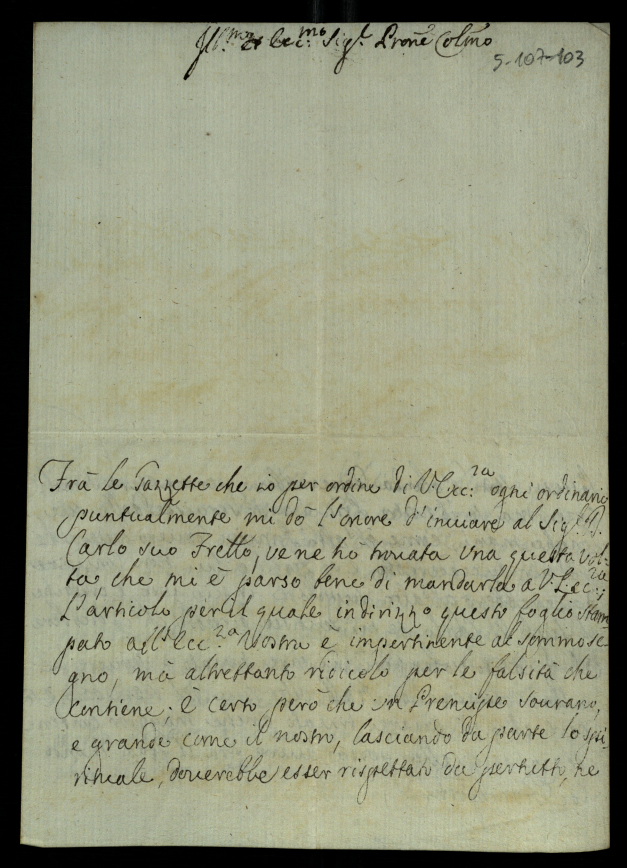 Ill.mo et Ecc.mo Sig.r Prone Colmo
5-107-103
Frà le Gazzette che io per ordine di V. Ecc.za ogni ordinario
puntualmente mi dò l'onore d'inviare al Sig.r D.
Carlo suo Frello, ve ne hò trouata una questa uol-
ta, che mi è parso bene di mandarla a V. Ecc.za;
L'articolo per il quale indirizzo questo foglio stam
pato all'Ecc.za Vostra è impertinente al sommo se-
gno, mà altrettanto ridicolo per le falsità che
contiene; è certo però che un Prencipe sourano,
e grande come il nostro, lasciando da parte lo spi-
rituale, douerebbe esser rispettato da pertutto, ne